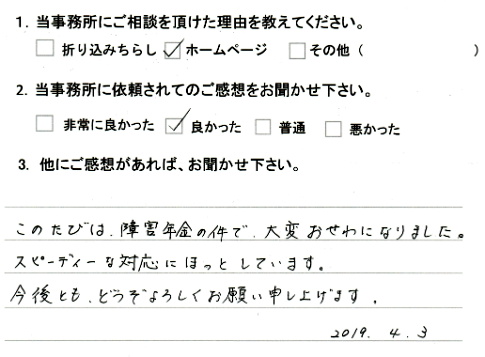 1. 当事務所にご相談を頂けた理由を教えてください。
□ 折り込みちらし ☑ ホームページ □ その他 ( )
2. 当事務所に依頼されてのご感想をお聞かせ下さい。
□ 非常に良かった ☑ 良かった □ 普通 □ 悪かった
3. 他にご感想があれば、お聞かせ下さい。
このたびは、障害年金の件で、大変おせわになりました。
スピーディーな対応にほっとしています。
今後とも、どうぞよろしくお願い申し上げます。
2019. 4. 3